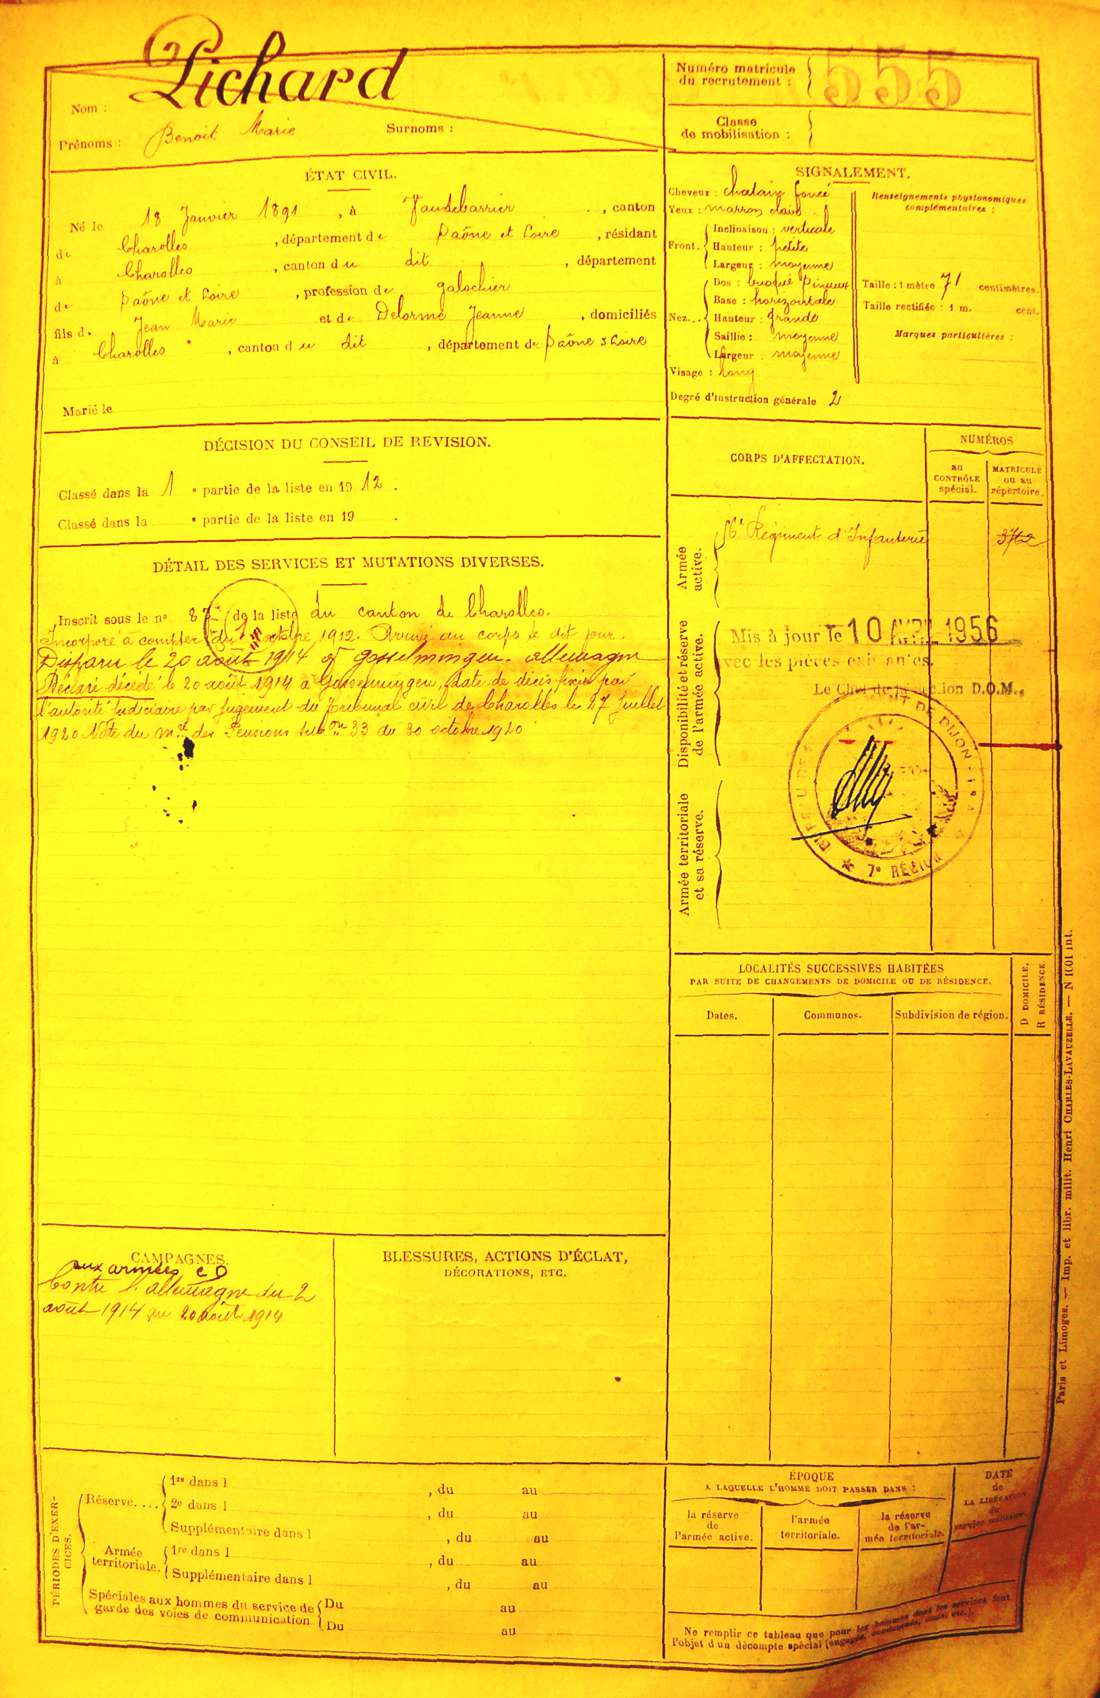 Nom : Pichard
Prénoms : Benoit Marie Surnoms :
Numéro matricule
du recrutement : 555
Classe
de mobilisation :
ÉTAT CIVIL.
Né le 18 Janvier 1891, à Vaudebarrier, canton
de Charolles, département de Saône et Loire, résidant
à Charolles, canton du dit, département
de Saône et Loire, profession de galochier
fils de Jean Marie et de Delorme Jeanne, domiciliés
à Charolles, canton du dit, département de Saône & Loire
Marié le
SIGNALEMENT.
Cheveux : chatain foncé
Yeux : marron clair
Front. Inclinaison : verticale
Hauteur : petite
Largeur : moyenne
Nez... Dos : busqué sinueux
Base : horizontale
Hauteur : grande
Saillie : moyenne
Largeur : moyenne
Visage : long
Degré d'instruction générale 2
Renseignements physionomiques
complémentaires :
Taille : 1 mètre 71 centimètres.
Taille rectifiée : 1 m. cent.
Marques particulières :
DÉCISION DU CONSEIL DE REVISION.
Classé dans la 1 e partie de la liste en 19 12.
Classé dans la e partie de la liste en 19 .
DÉTAIL DES SERVICES ET MUTATIONS DIVERSES.
Inscrit sous le n° 87 de la liste du canton de Charolles.
Incorporé à compter du octobre 1912. Arrivé au corps le dit jour.
Disparu le 20 août 1914 à gosselmingen allemagne
Déclaré décédé le 20 août 1914 à date de décès fixée par
l'autorité judiciaire par jugement du Tribunal civil de Charolles le 27 juillet
1920 Note du Mst des Pensions 33 du 30 octobre 1920
CORPS D'AFFECTATION.
NUMÉROS
au
CONTRÔLE
spécial.
MATRICULE
ou au
répertoire.
Armée
active.
56e Régiment d'Infanterie 3762
Disponibilité et réserve
de l'armée active.
Mis à jour le 10 AVRIL 1956
avec les pièces existantes.
Le Chef de la section D.O.M.
DE DIJON
7e RÉGION
Armée territoriale
et sa réserve.
LOCALITÉS SUCCESSIVES HABITÉES
PAR SUITE DE CHANGEMENTS DE DOMICILE OU DE RÉSIDENCE.
Dates. Communes. Subdivision de région. D DOMICILE,
R RÉSIDENCE.
CAMPAGNES.
aux armées CD
Contre l'allemagne du 2
août 1914 au 20 août 1914
BLESSURES, ACTIONS D'ÉCLAT,
DÉCORATIONS, ETC.
PÉRIODES D'EXER-
CICES.
Réserve.... 1re dans l , du au
2e dans l , du au
Supplémentaire dans l , du au
Armée
territoriale. 1re dans l , du au
Supplémentaire dans l , du au
Spéciales aux hommes du service de
garde des voies de communication. Du au
Du au
ÉPOQUE
A LAQUELLE L'HOMME DOIT PASSER DANS :
la réserve
de
l'armée active.
l'armée
territoriale.
la réserve
de l'ar-
mée territoriale.
DATE
de
LA LIBÉRATION
du
service militaire.
Ne remplir ce tableau que pour les hommes dont les services font
l'objet d'un décompte spécial (engagés, condamnés, omis, etc.).
Paris et Limoges. — Imp. et libr. milit. Henri CHARLES-LAVAUZELLE. — N 1001 int.